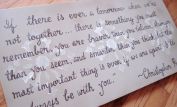 If there is ever a tomorrow when we're
not together... there is something you must
remember, you are braver than you believe, stronger
than you seem, and smarter than you think. but the
most important thing is even if we are apart I'll
always be with you. ~ Christopher R